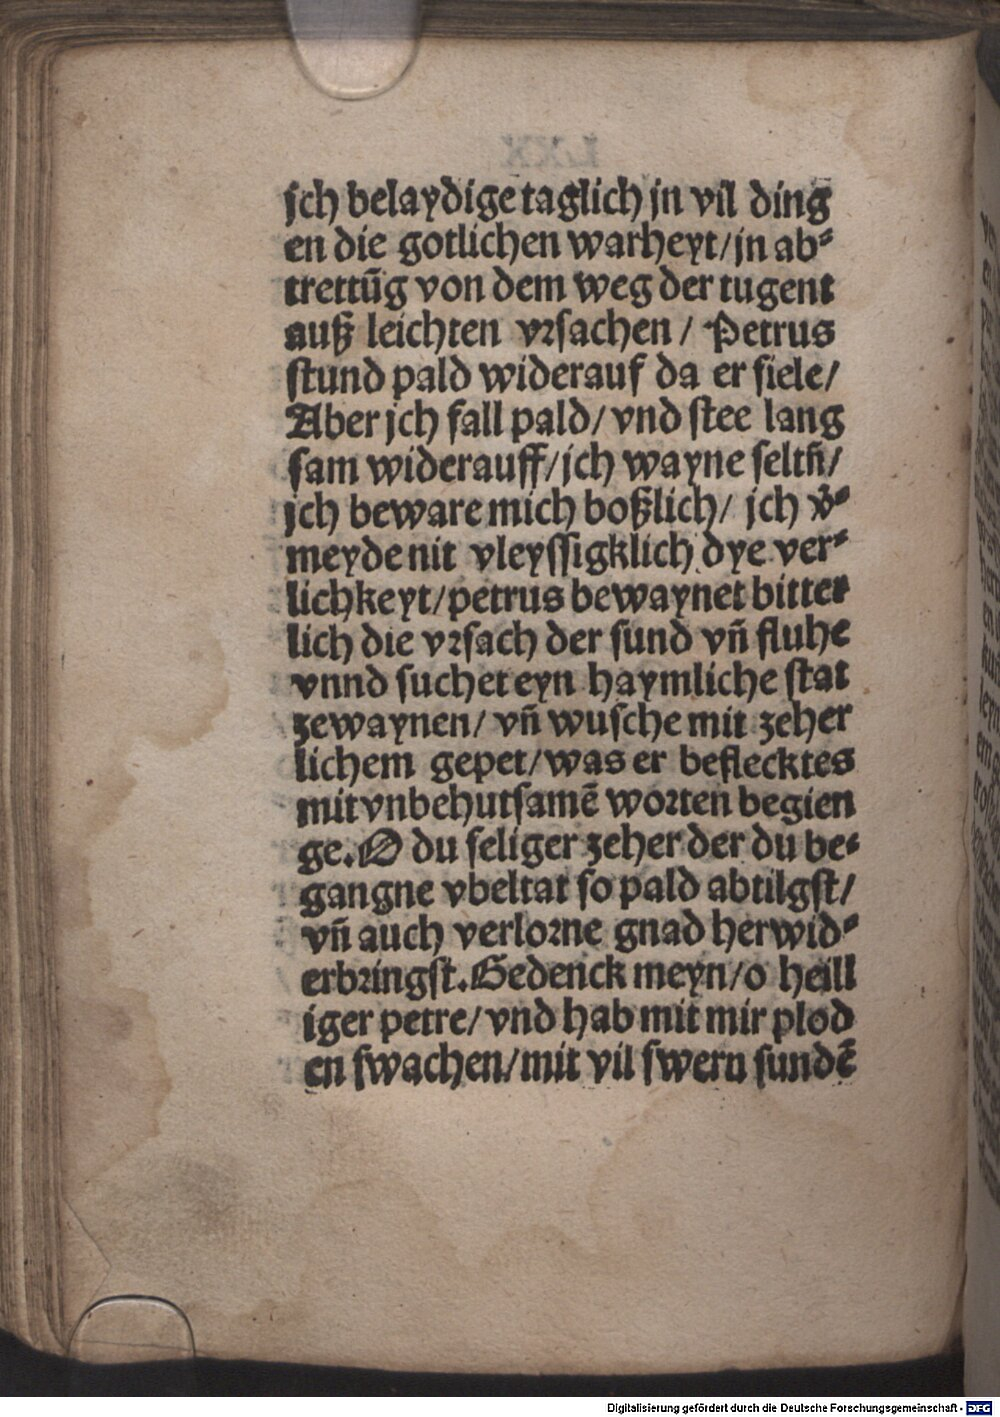 jch belaydige taglich jn vil ding
en die gotlichen warheyt/jn ab⸗
trettūg von dem weg der tugent
auß leichten vrsachen / Petrus
stund pald widerauf da er fiele/
Aber jch fall pald/vnd stee lang
sam widerauff/jch wayne seltn̄/
jch beware mich boßlich/ jch v̓⸗
meyde nit vleyssigklich dye ver⸗
lichkeyt/petrus bewaynet bitter
lich die vrsach der sund vn̄ fluhe
vnnd suchet eyn haymliche stat
zewaynen/ vn̄ wusche mit zeher
lichem gepet/was er beflecktes
mit vnbehutsamē worten begien
ge.O du seliger zeher der du be⸗
gangne vbeltat so pald abtilgst/
vn̄ auch verlorne gnad herwid⸗
erbringst.Gedenck meyn/o heill
iger petre/vnd hab mit mir plod
en swachen/mit vil swern sundē
Digitalisierung gefördert durch die Deutsche Forschungsgemeinschaft - DFG